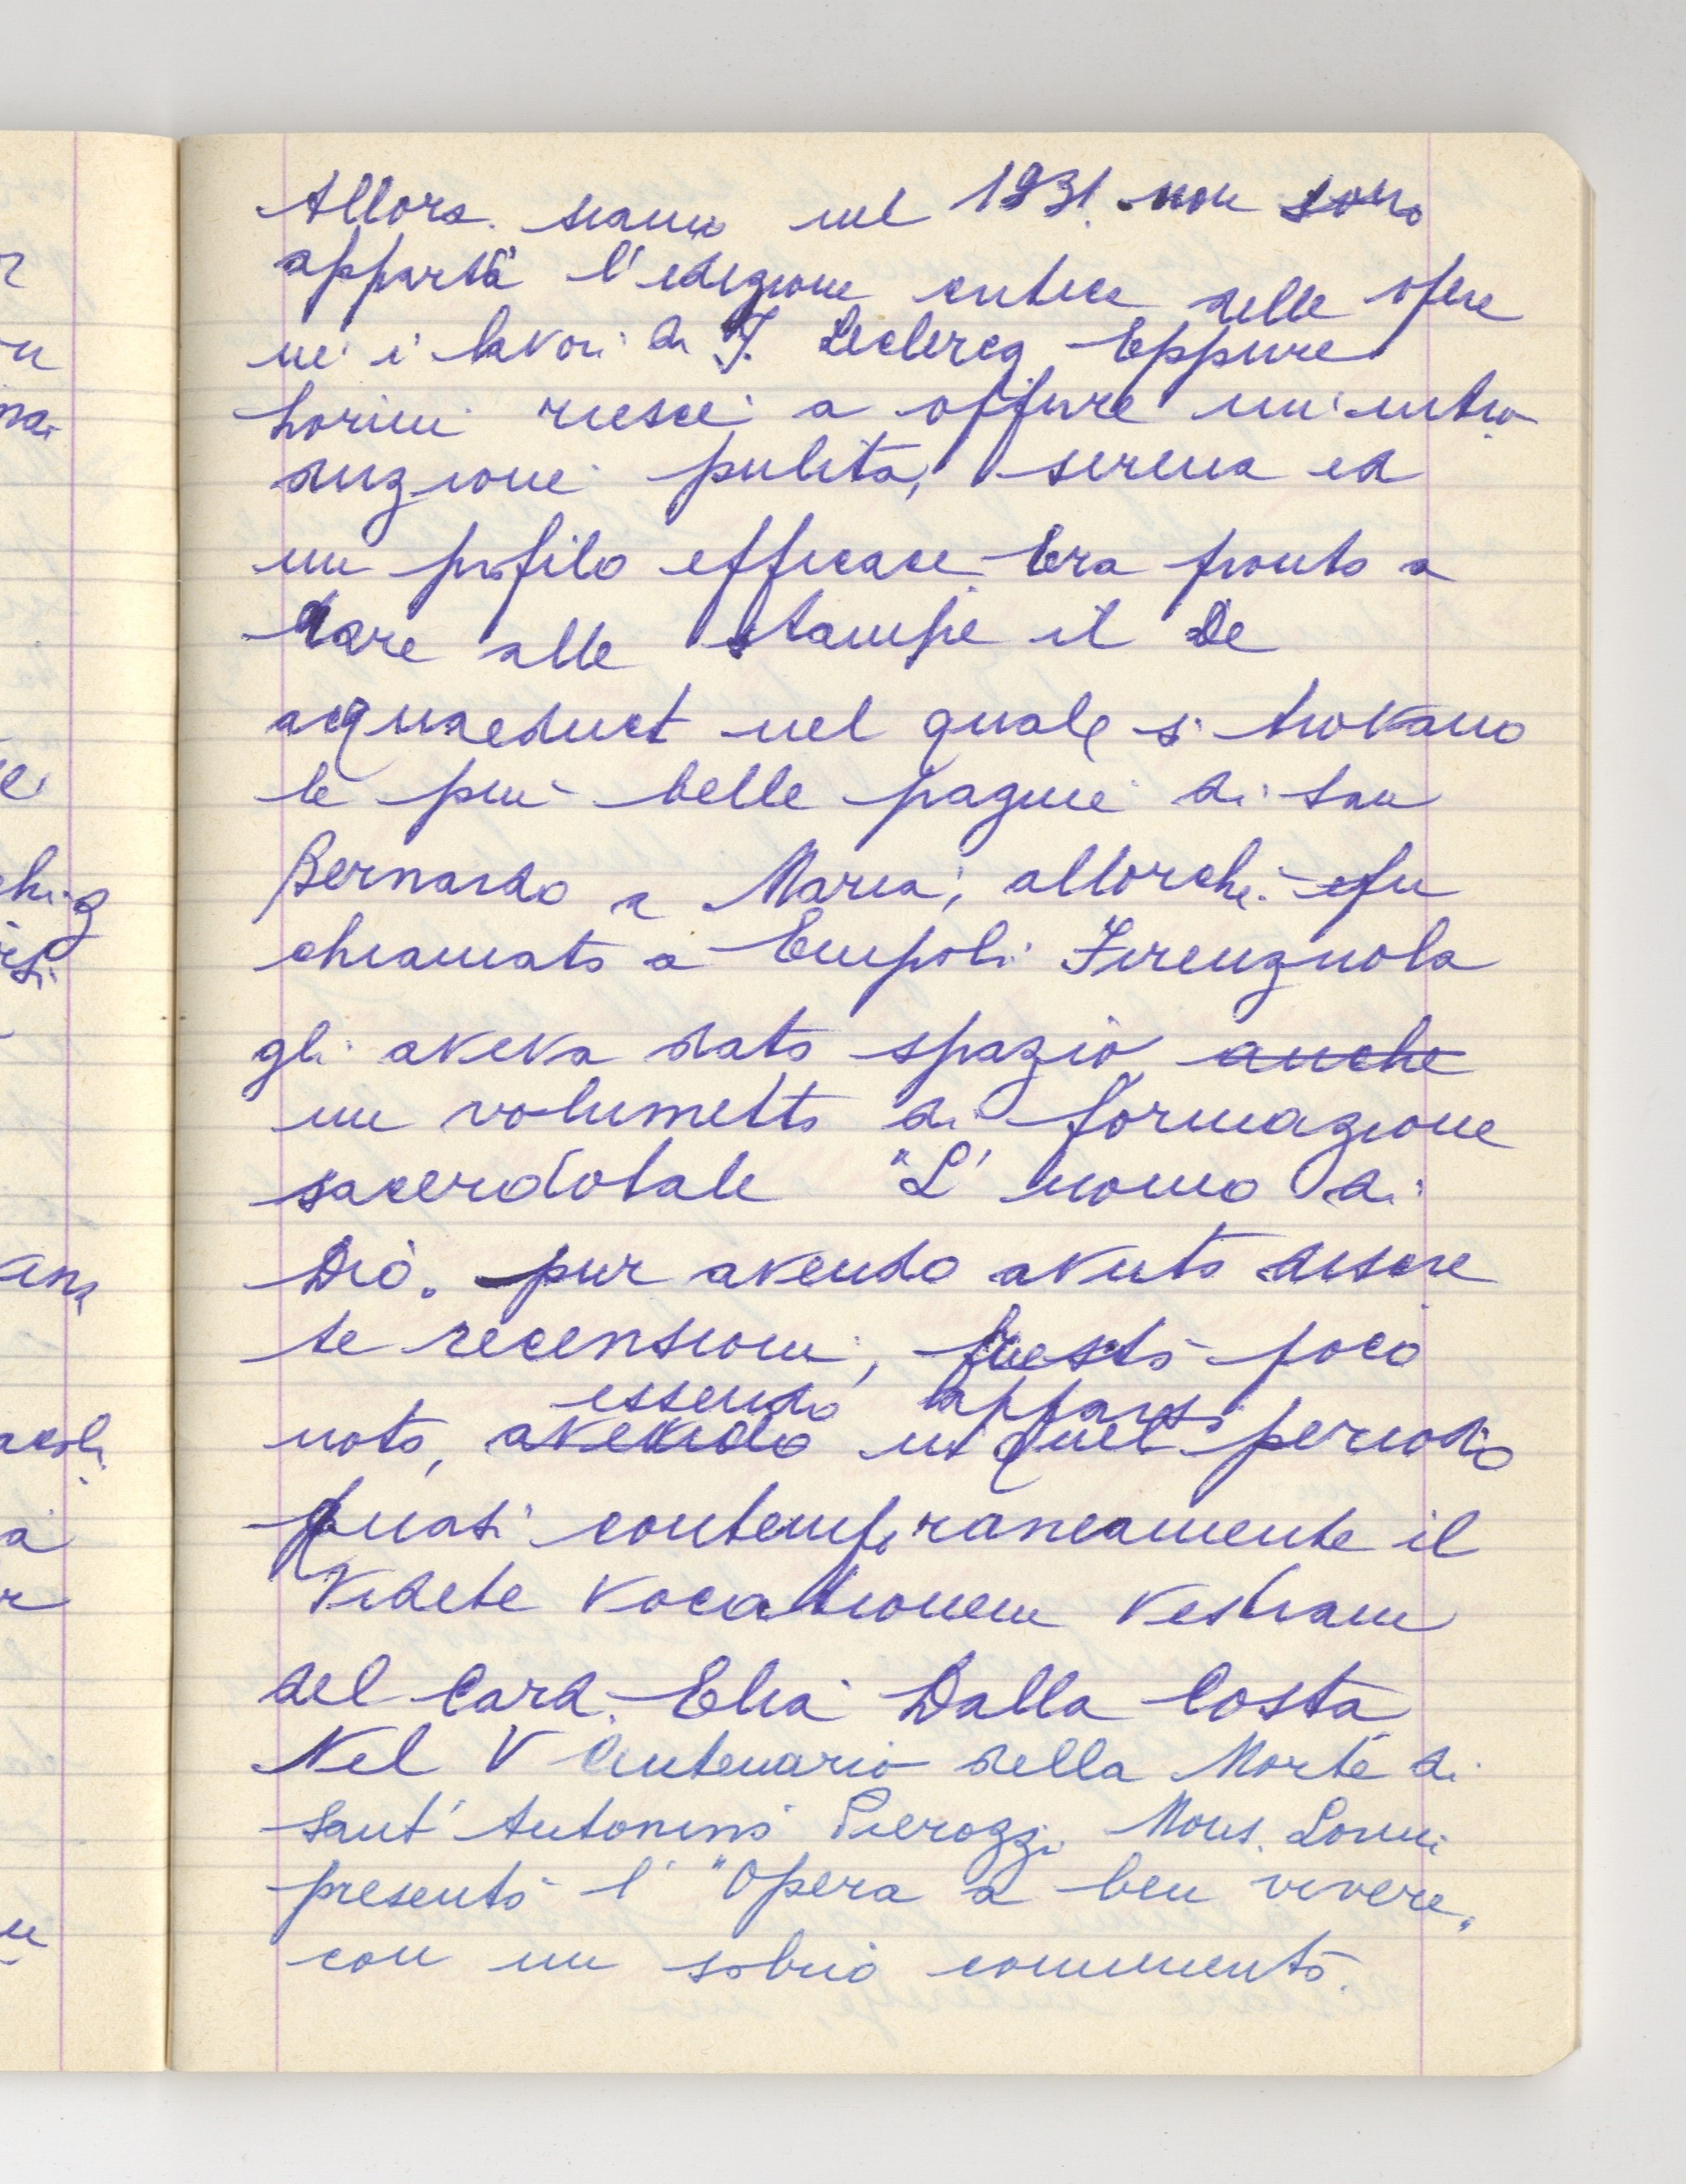 Allora siamo nel 1931. non sono
apparsa l'edizione critica delle opere
nè i lavori di J. Leclercq Eppure
Lorini riescì a offrire un'intro
duzione pulita, serena ed
un profilo efficace. Era pronto a
dare alle stampe il De
acquaeduct nel quale si trovano
le più belle pagine di san
Bernardo a Maria, allorchè fu
chiamato a Empoli Firenzuola
gli aveva dato spazio anche
un volumetto di formazione
sacerdotale "L'uomo di
Dio". pur avendo avuto discre
te recensioni, restò poco
essendo apparso
noto, avendo in quel periodo
quasi contemporaneamente il
Videte vocationem vestram
del Card. Elia Dalla Costa
Nel V Centenario della Morte di
Sant'Antonino Pierozzi Mons. Lorini
presentò l'"Opera a ben vivere"
con un sobrio commento.